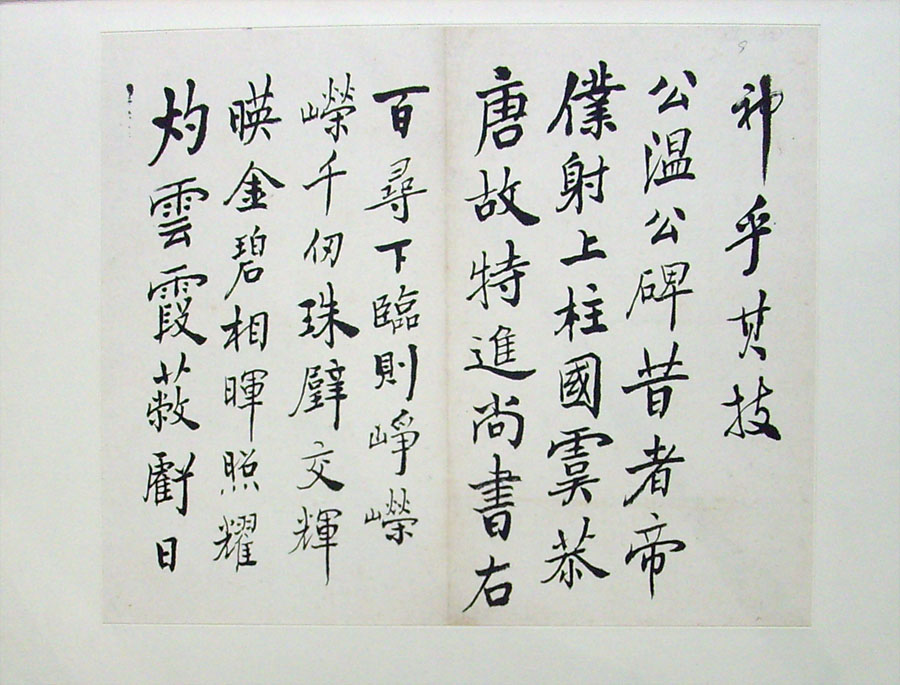 神乎其技
公温公碑昔者帝
僕射上柱國虞恭
唐故特進尚書右
百尋下臨則崢嶸
嶸千仞珠璧交輝
暎金碧相暉照耀
灼雲霞蔽虧日